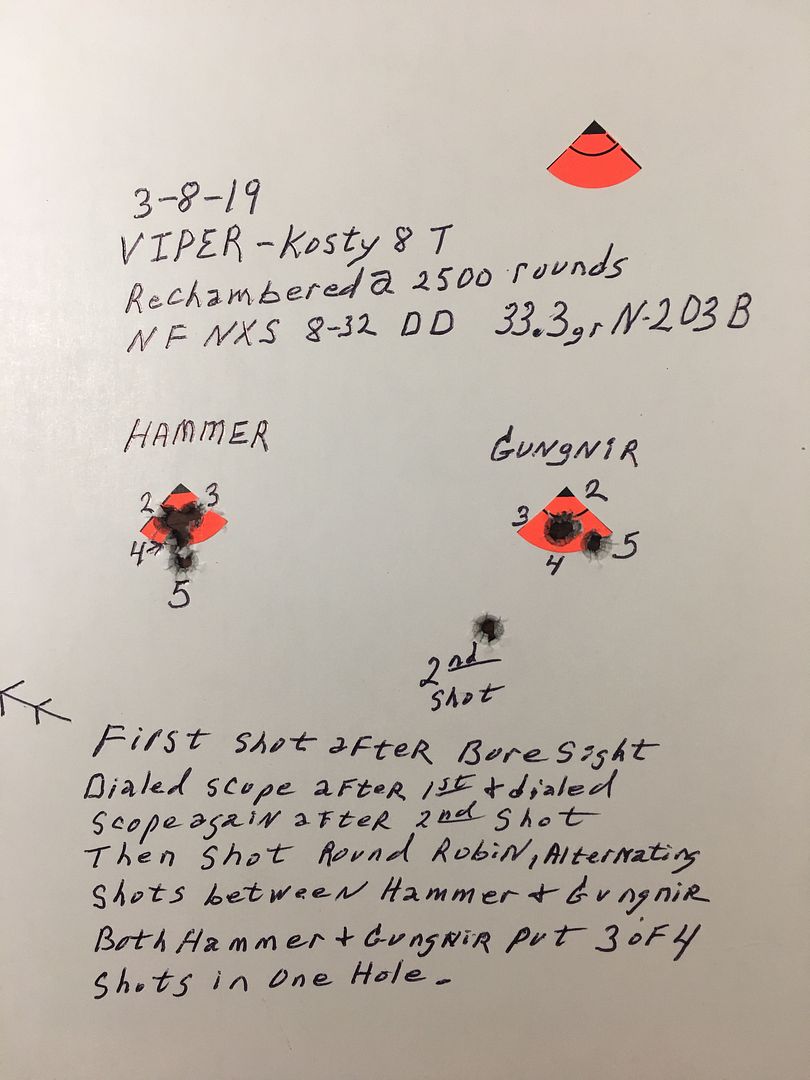 3-8-19
VIPER - Kosty 8 T
Rechambered @ 2500 rounds
NF NXS 8-32 DD 33.3gr N-203B
HAMMER
GUNGNIR
2 3
4→
5
2
3
4
5
2nd
Shot
First shot after Bore Sight
Dialed scope after 1st & dialed
scope again after 2nd shot
Then shot Round Robin, Alternating
shots between Hammer & Gungnir
Both Hammer & Gungnir put 3 of 4
shots in One Hole.